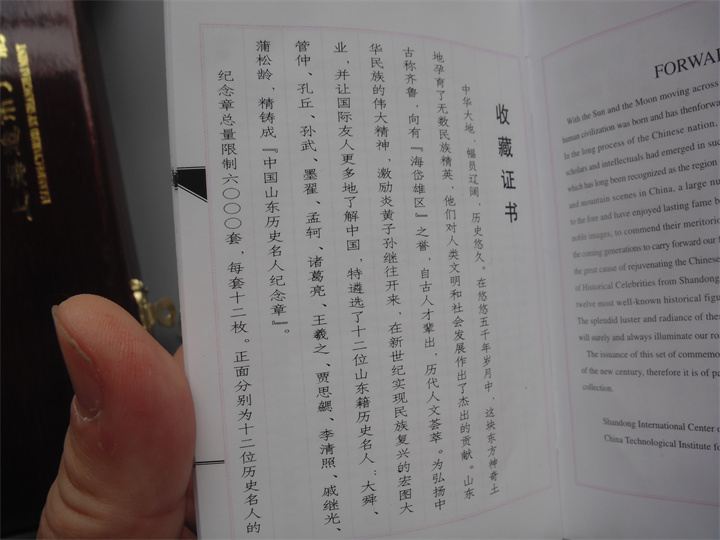 收藏证书
中华大地，幅员辽阔，历史悠久。在悠悠五千年岁月中，这块东方神奇土
地孕育了无数民族精英，他们对人类文明和社会发展作出了杰出的贡献。山东
古称齐鲁，向有『海岱雄区』之誉，自古人才辈出，历代人文荟萃。为弘扬中
华民族的伟大精神，激励炎黄子孙继往开来，在新世纪实现民族复兴的宏图大
业，并让国际友人更多地了解中国，特遴选了十二位山东籍历史名人：大舜、
管仲、孔丘、孙武、墨翟、孟轲、诸葛亮、王羲之、贾思勰、李清照、戚继光、
蒲松龄，精铸成『中国山东历史名人纪念章』。
纪念章总量限制六〇〇〇套，每套十二枚。正面分别为十二位历史名人的
FORWA
With the Sun and the Moon moving across
human civilization was born and has thenforwa
In the long process of the Chinese nation,
scholars and intellectuals had emerged in suc
which has long been recognized as the region
and mountain scenes in China, a large nu
to the fore and have enjoyed lasting fame b
noble images, to commend their meritorio
the coming generations to carry forward our
the great cause of rejuvenating the Chinese
of Historical Celebrities from Shandong
twelve most well-known historical figu
The splendid luster and radiance of thes
will surely and always illuminate our ro
The issuance of this set of commemo
of the new century, therefore it is of pa
collection.
Shandong International Center o
China Technological Institute fo